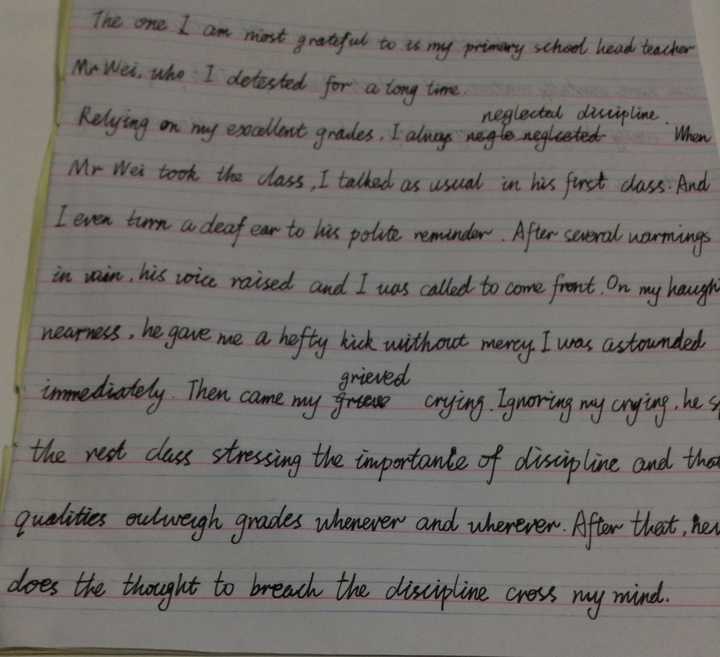 The one I am most grateful to is my primary school head teacher
Mr Wei, who I detested for a long time.
neglected discipline.
Relying on my excellent grades, I always neglected When
Mr Wei took the class, I talked as usual in his first class. And
I even turn a deaf ear to his polite reminder. After several warnings
in vain, his voice raised and I was called to come front. On my
nearness, he gave me a hefty kick without mercy. I was astounded
grieved
immediately. Then came my crying. Ignoring my crying, he
the rest class stressing the importance of discipline and
qualities outweigh grades whenever and wherever. After that,
does the thought to breach the discipline cross my mind.